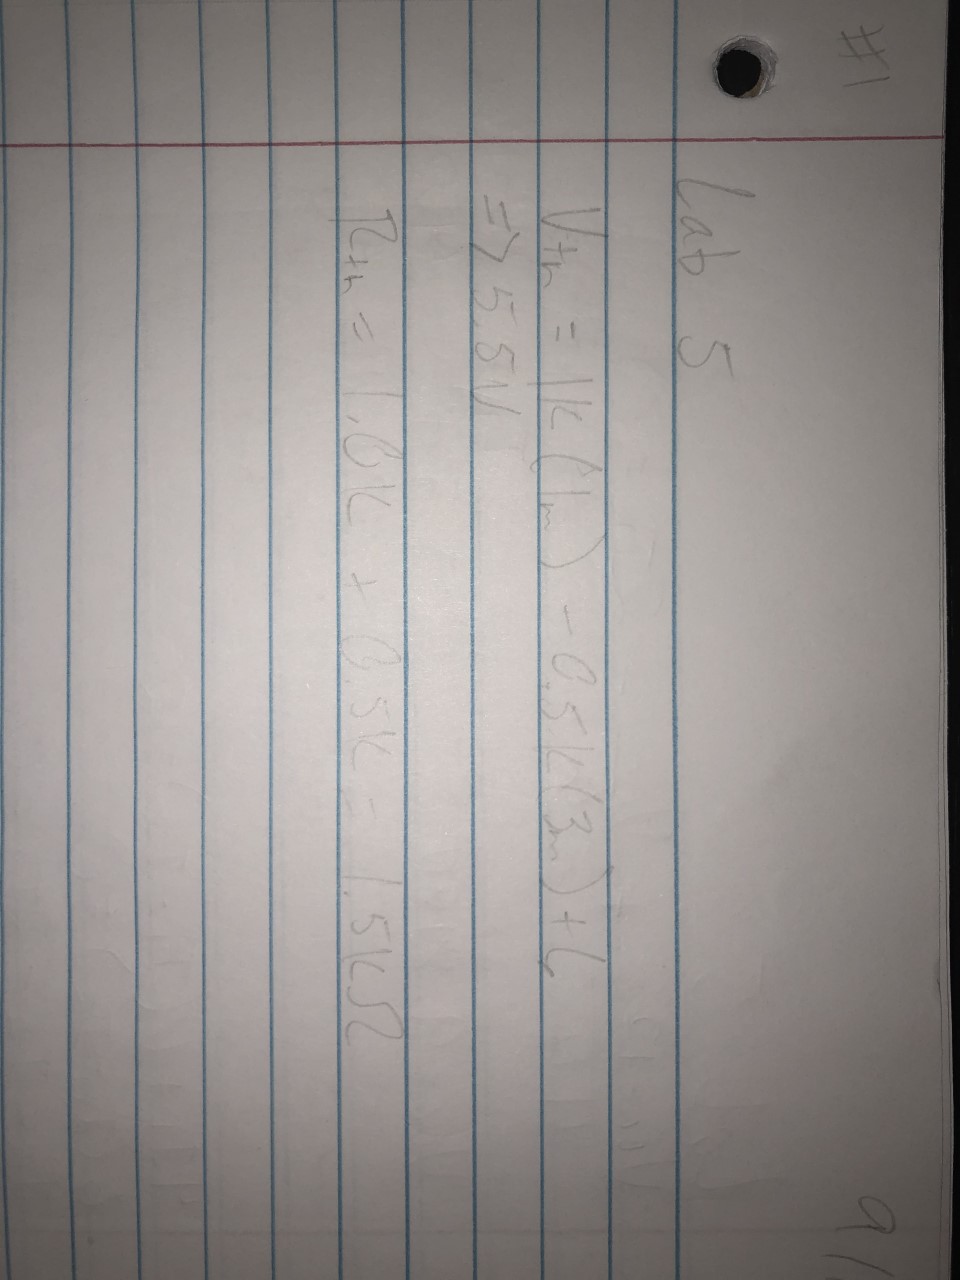 #1
91
Lab 5
Vth = 1k(1m) - 0.5k(3m) + 6
=> 5.5V
Rth = 1.0k + 0.5k = 1.5kΩ